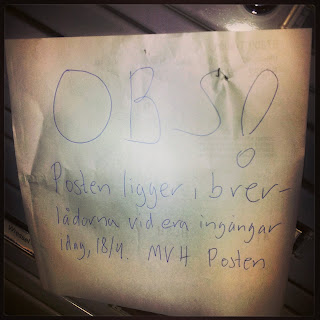 OBS!
Posten ligger i brev-
lådorna vid era ingångar
idag, 18/4. MVH Posten